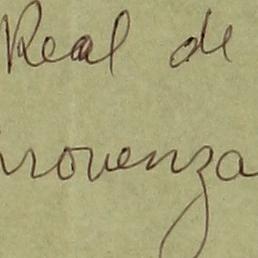 Real de
rovenza